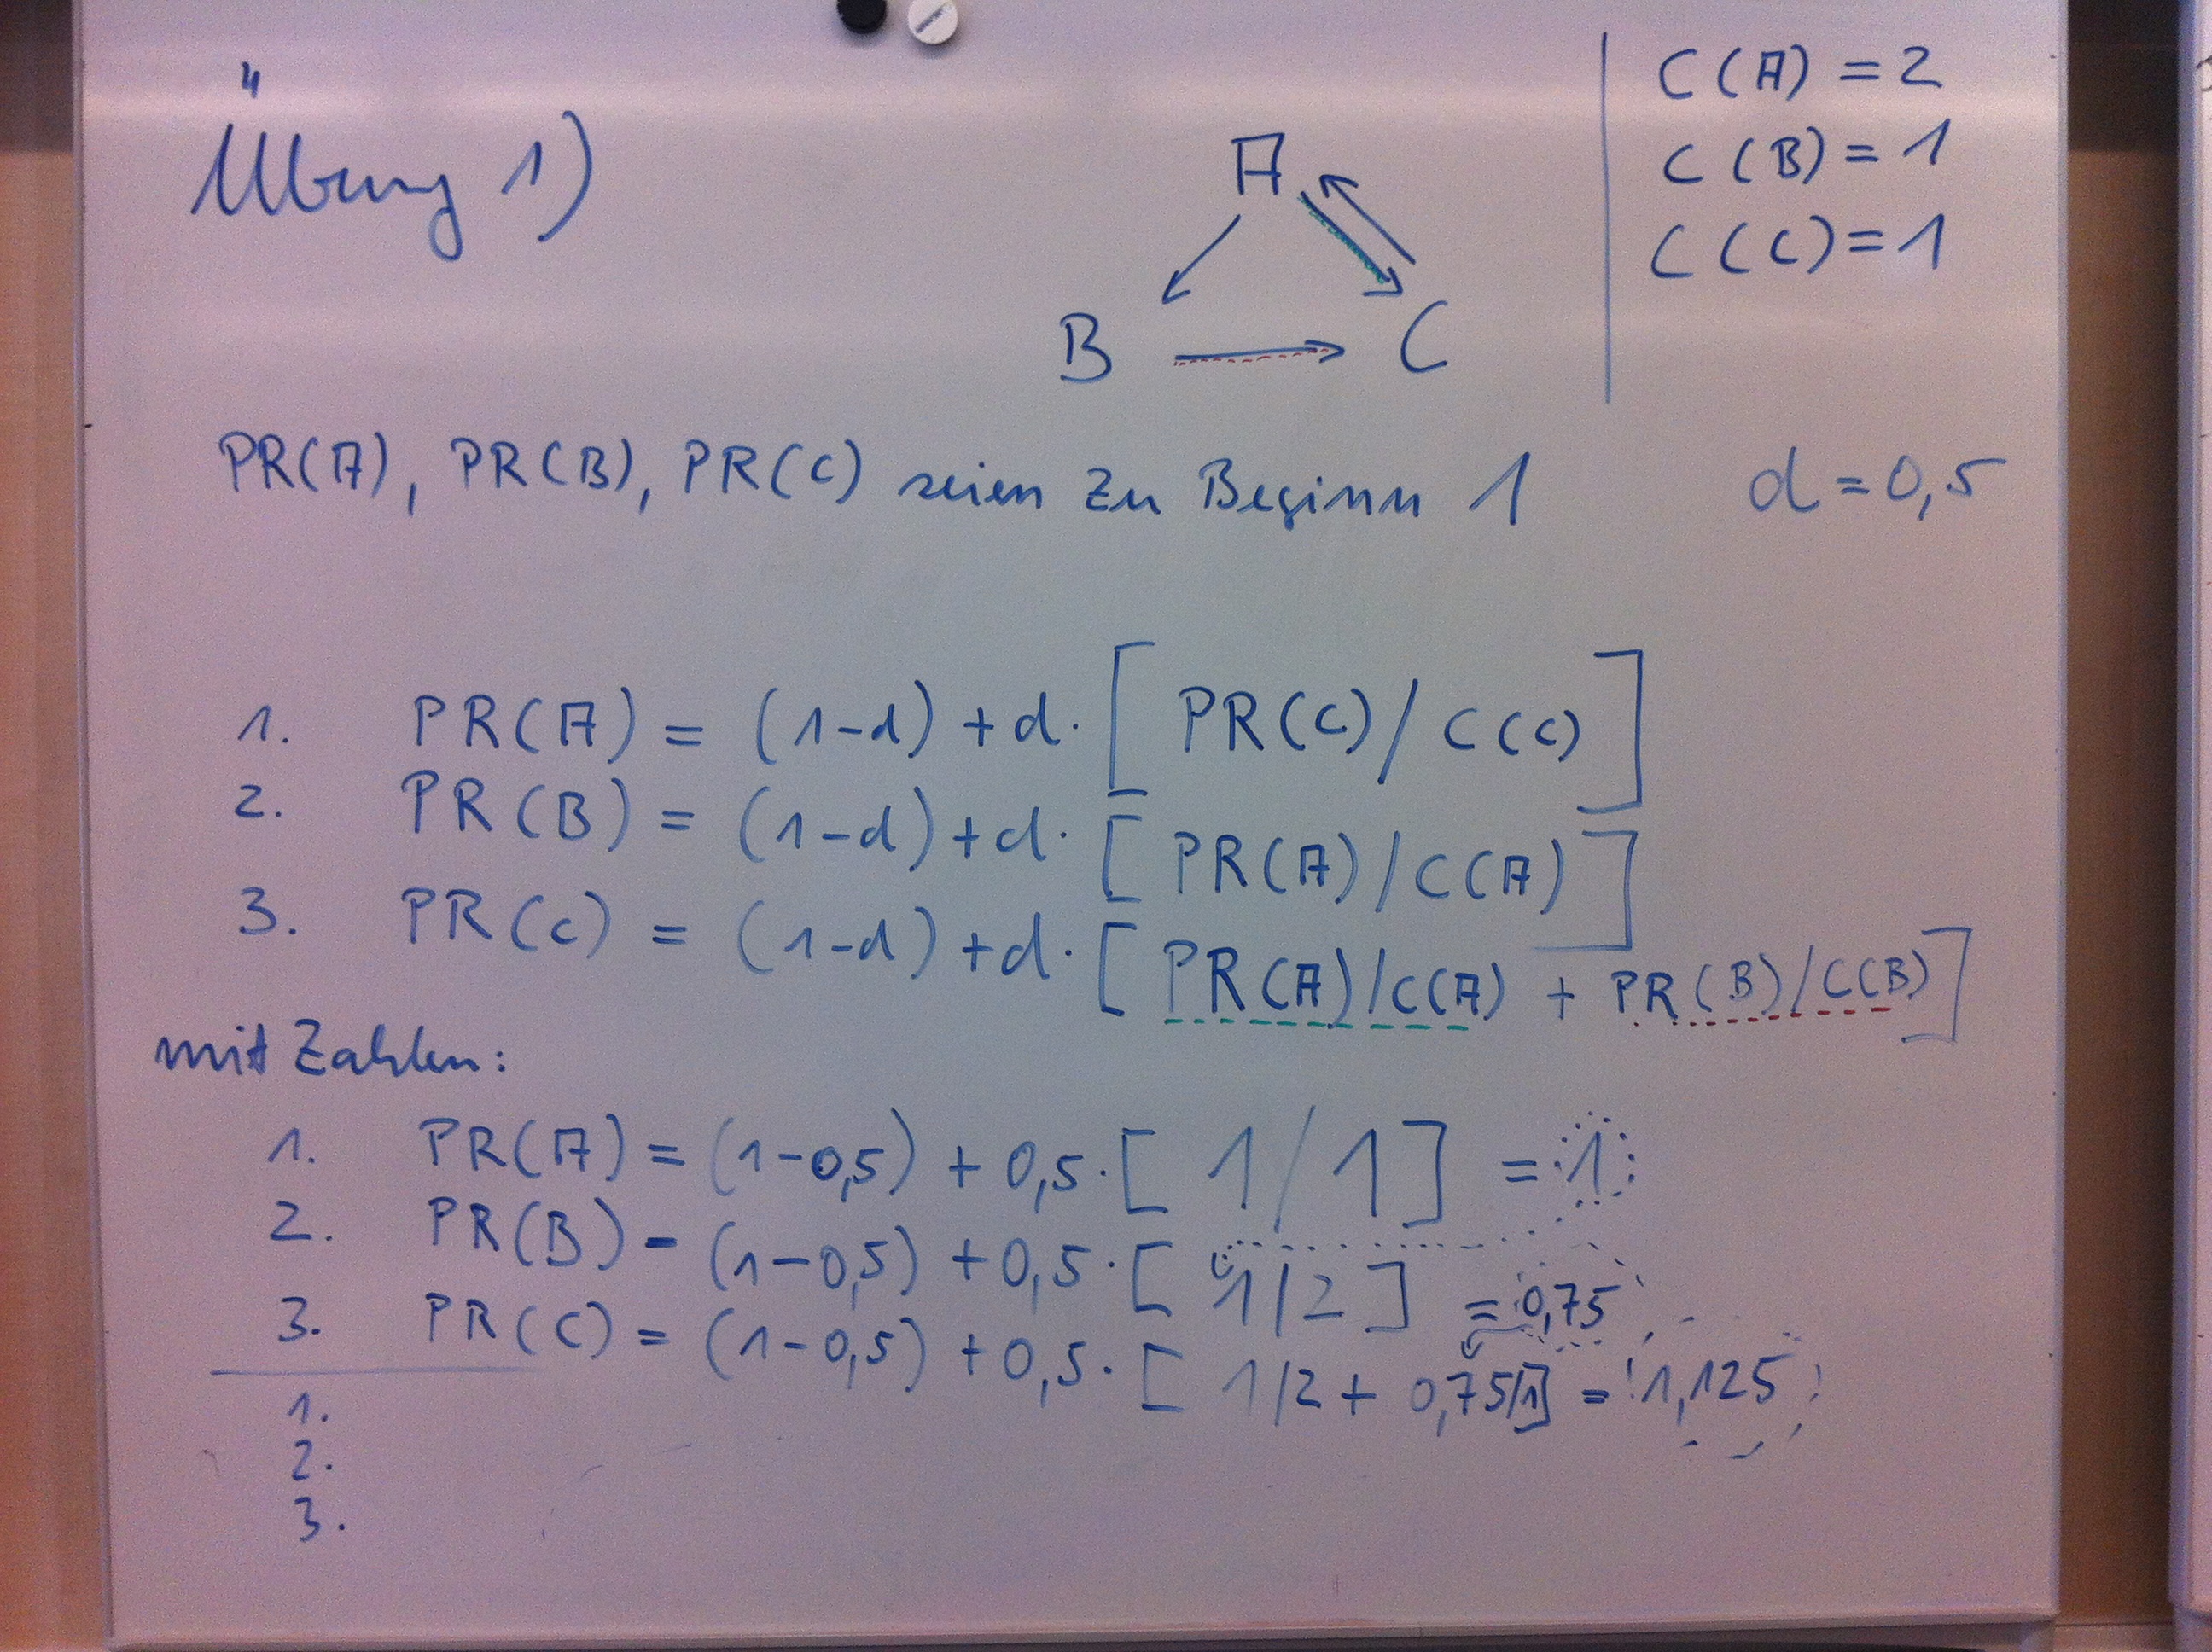 Übung 1)
A
B
C
C(A) = 2
C(B) = 1
C(C) = 1
PR(A), PR(B), PR(C) seien zu Beginn 1
d = 0,5
1. PR(A) = (1-d) + d · [PR(C)/C(C)]
2. PR(B) = (1-d) + d · [PR(A)/C(A)]
3. PR(C) = (1-d) + d · [PR(A)/C(A) + PR(B)/C(B)]
mit Zahlen:
1. PR(A) = (1-0,5) + 0,5 · [1/1] = 1
2. PR(B) = (1-0,5) + 0,5 · [1/2] = 0,75
3. PR(C) = (1-0,5) + 0,5 · [1/2 + 0,75/1] = 1,125
1.
2.
3.